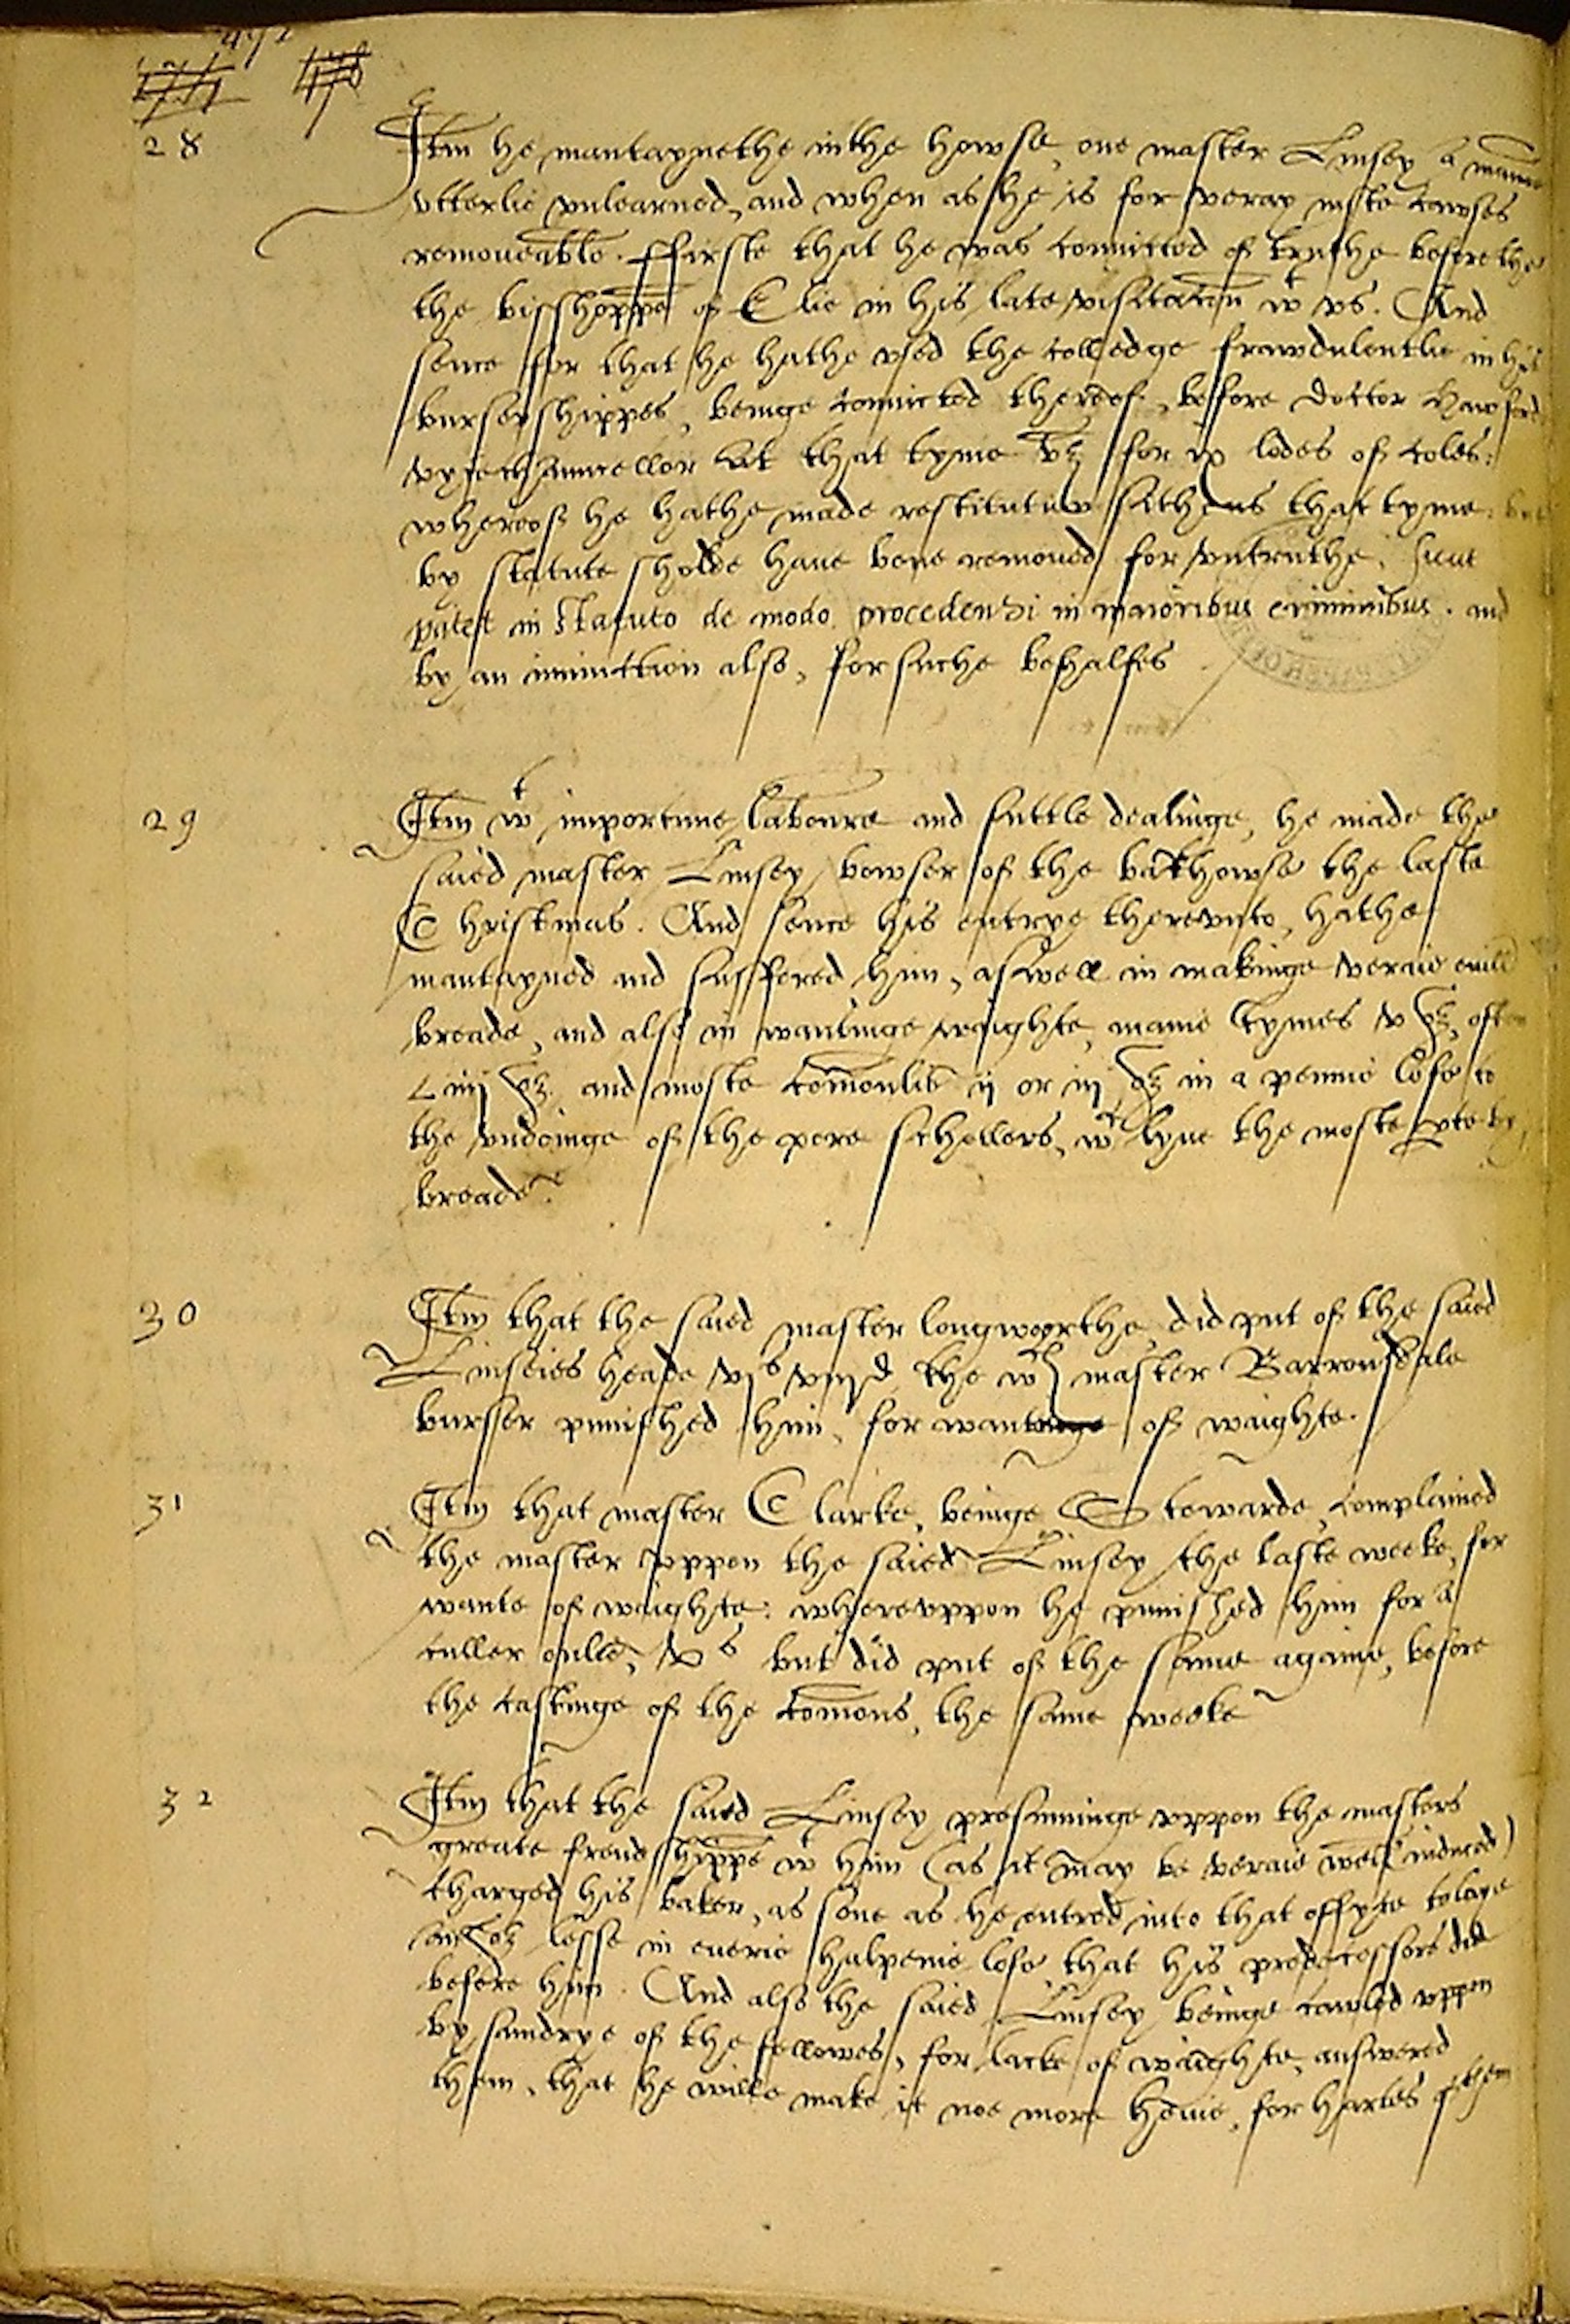 28 Itm he mantaynethe in the howse, one master Linsey a mann
vtterlie vnlearned, and when as he is for veray juste cawses
remoueable. Ffirste that he was convicted of truthe before the
the bisshoppe of Elie in his late visitacōn wt vs. And
sence for that he hathe vsed the colledge frawdulentlie in his
burseyshippes, beinge convicted thereof, before Doctor Hawford
vycechanncellor at that tyme vz for ix lodes of coles:
whereof he hathe made restitution sithens that tyme. but
by statute sholde haue bene remoued for vntruthe. sicut
patet in statuto de modo procedendi in maioribus criminibus. and
by an iniunction also, for suche behalfes
29 Itm wt importune laboure and suttle dealinge, he made the
saied master Linsey bowser of the backhowse the laste
Christmas. And sence his entrye therevnto, hathe
mantayned and suffered him, aswell in makinge veraie euill
breade, and also in wantinge waighte, manie tymes v oz, often
iiij oz. and moste comonlie ij or iij oz in a pennie lofe to
the vndoinge of the pore schollers, wch lyue the moste pte by
breade.
30 Itm that the saied master longwoorthe, did put of the saied
Linseies heade vjs viijd the wch master Barronsdale
bursser punished him, for wantinge of waighte.
31 Itm that master Clarke, beinge Stewarde, complained
the master vppon the saied Linsey the laste weeke, for
wante of waighte: wherevppon he punished him for a
culler onlie, xs but did put of the same againe, before
the castinge of the comons, the same weeke
32 Itm that the saied Linsey presuminge vppon the masters
greate frendshippe wt him (as it may be veraie well induced)
charged his baker, as sone as he entred into that offyce to laye
oz lesse in euerie halpenie lofe that his predecessors did
before him. And also the saied Linsey beinge cawled vppon
by sundrye of the fellowes, for lacke of waighte, answered
them, that he wille make it noe more heuie, for hartes of them